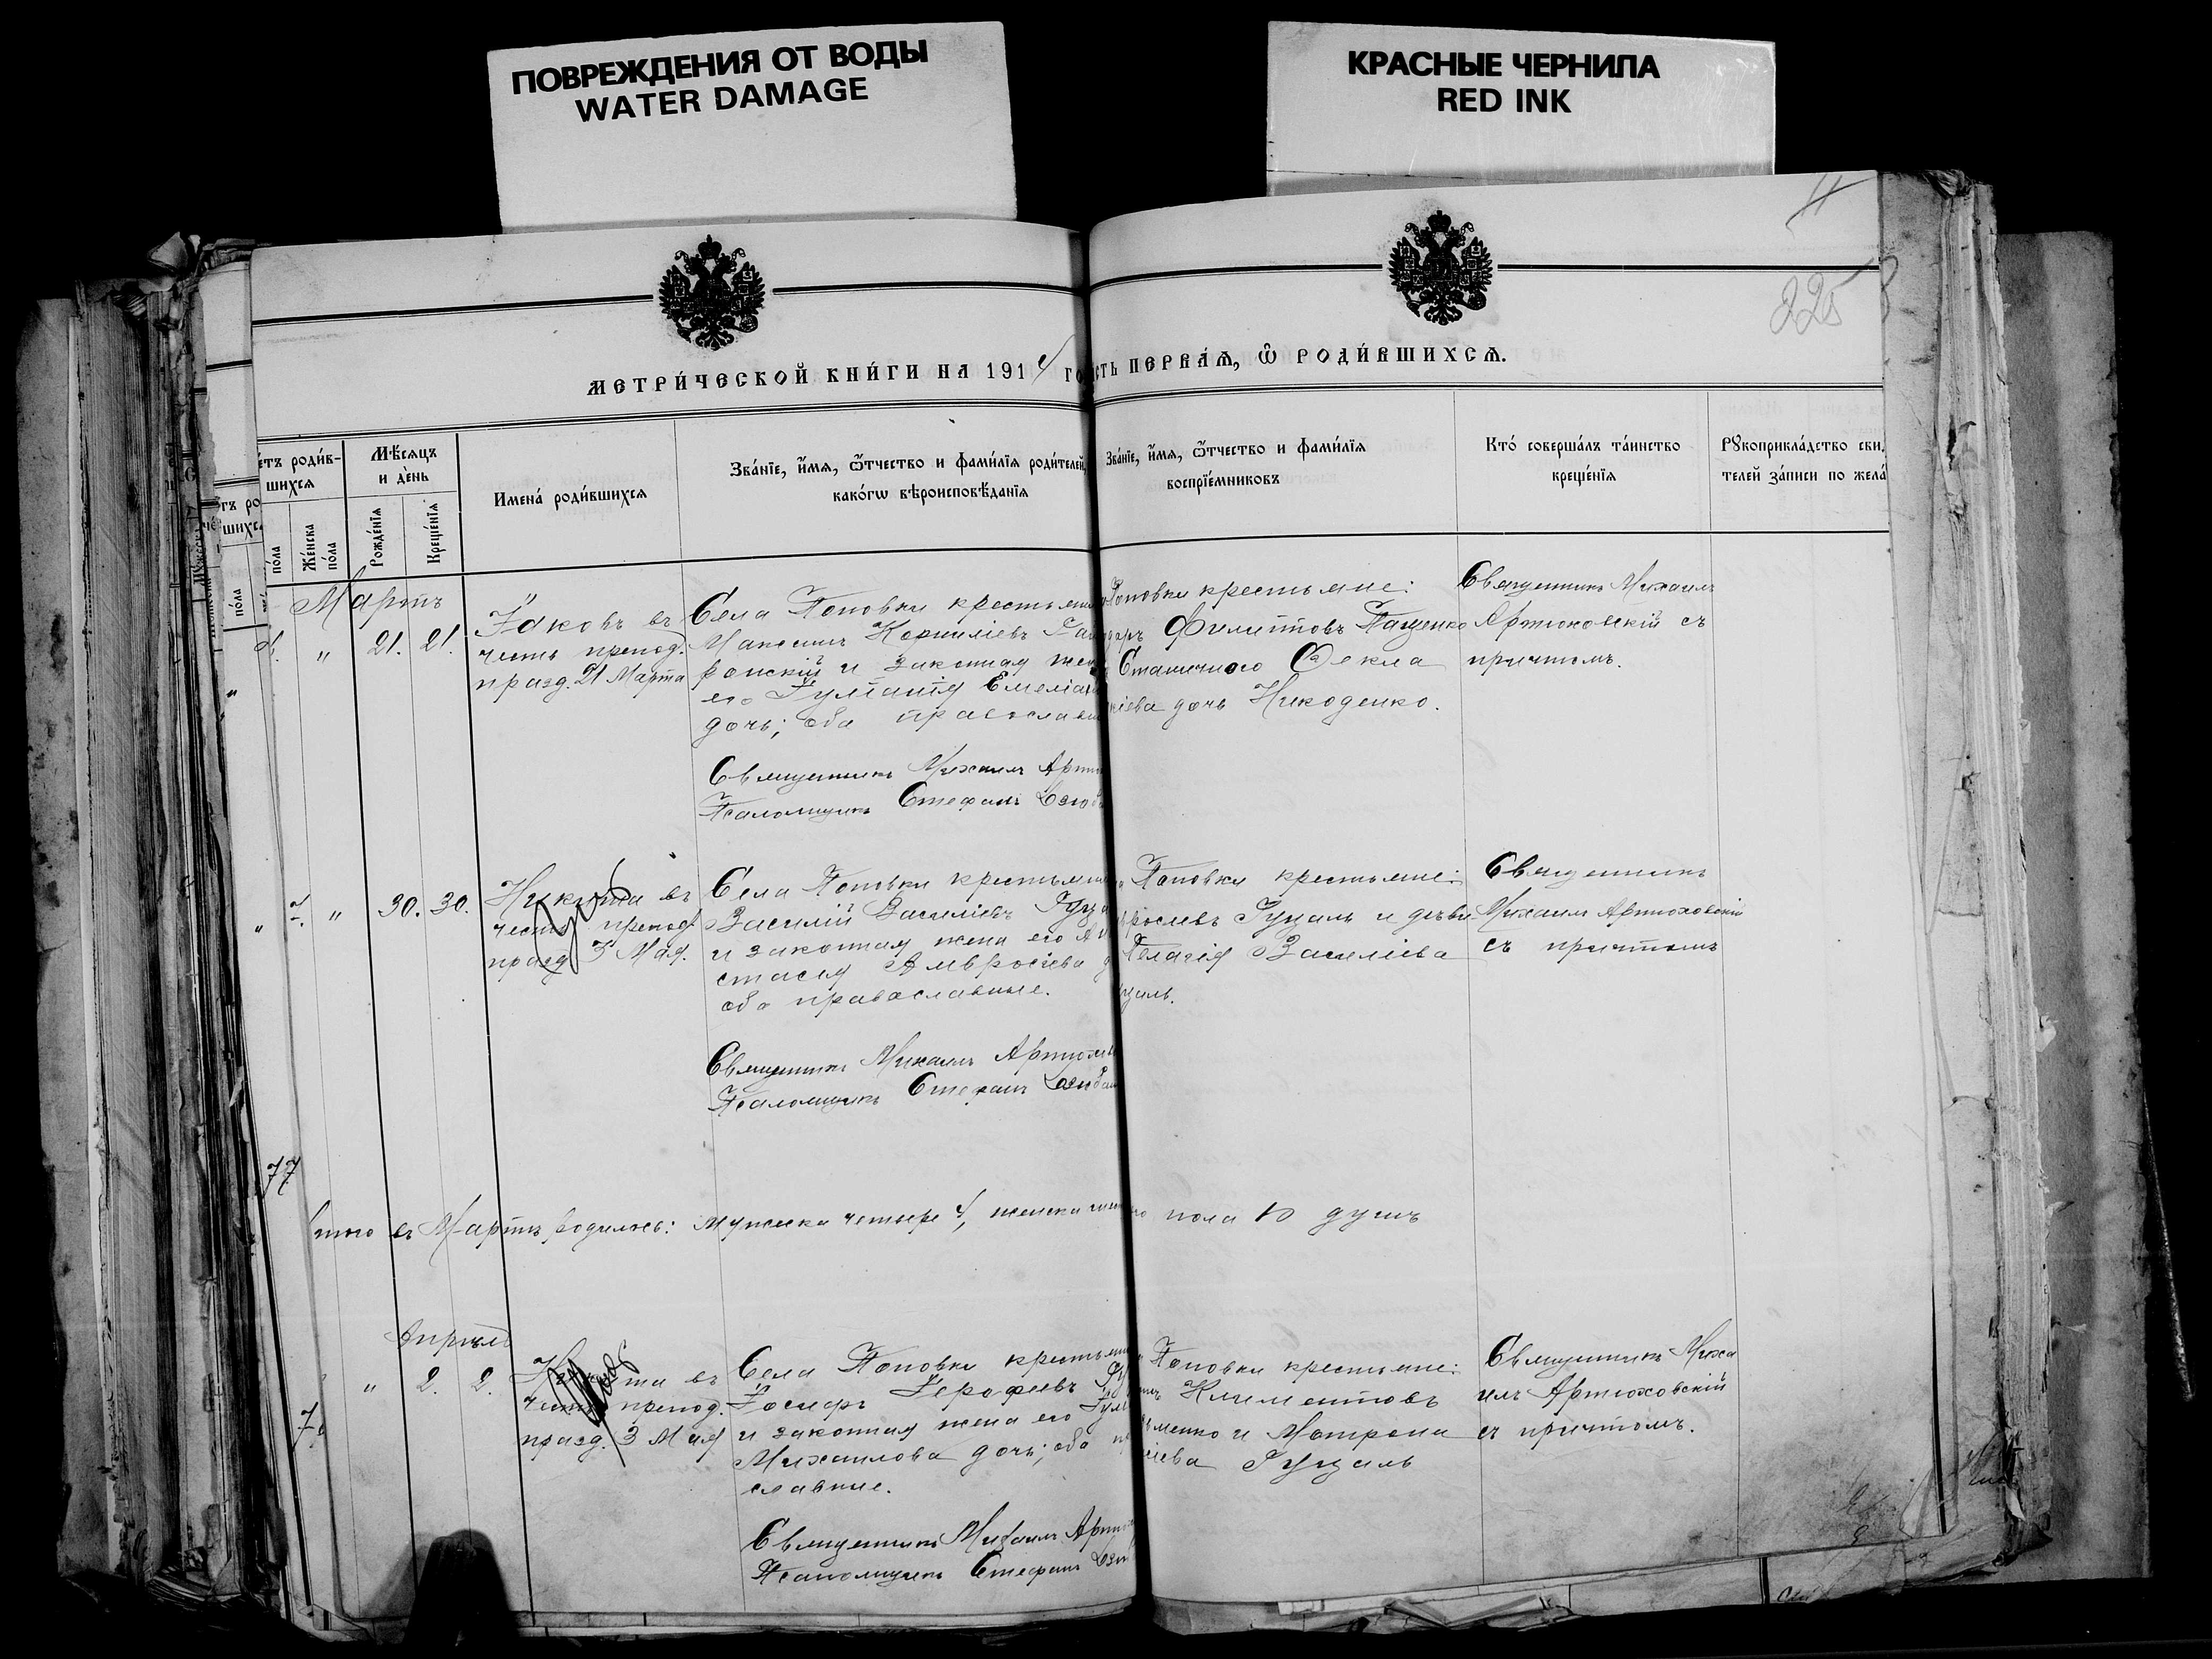 ПОВРЕЖДЕНИЯ ОТ ВОДЫ
WATER DAMAGE
КРАСНЫЕ ЧЕРНИЛА
RED INK
225
МЕТРИ́ЧЕСКОЙ КНИ́ГИ НА 1914 ГО
СТЬ ПЕРВА́Ѧ, Ѡ҆ РОДИ́ВШИХСѦ.
етъ роди́в-
шихсѧ
по́ла
Же́нска по́ла
Мѣ́сѧцъ и де́нь
Рожде́нїѧ
Креще́нїѧ
Имена̀ роди́вшихсѧ
Зва́нїе, и҆́мѧ, ѻ҆́тчество и фами́лїѧ роди́телей,
како́гѡ вѣроисповѣ́данїѧ
Зва́нїе, и҆́мѧ, ѻ҆́тчество и фами́лїѧ
воспрїе́мниковъ
Кто̀ соверша́лъ та́инство
креще́нїѧ
Рꙋкоприкла́дство сви,
телей за́писи по жела́
Мартъ
" 21. 21.
Іаковъ въ
честь препод.
празд. 21 Марта
Села Поповки крестьян
Максимъ Корниліевъ Гай
ронскій и законная жен
его Іуліанія Емеліан
дочь; оба православн
Священникъ Михаилъ Артю
Псаломщикъ Стефанъ
Поповки крестьяне:
Филипповъ Пащенко
Станичного Ѳекла
ніева дочь Никоденко.
Священникъ Михаилъ
Артюховскій съ
причтомъ.
" 7. " 30. 30.
Никита въ
честь препод.
празд. 3 Мая.
Села Поповки крестьян
Василій Василіевъ Гуц
и законная жена его Ана
стасія Амвросіева д
оба православные.
Священникъ Михаилъ Артюхов
Псаломщикъ Стефанъ
Поповки крестьяне:
росіевъ Гуцаль и дѣви
Пелагія Василіева
цаль.
Священникъ
Михаилъ Артюховскій
съ причтомъ
77
Итого въ Мартѣ родилось: мужска четыре 4, женска
пола 10 душъ
Апрѣль
" 2. 2.
Никита въ
честь препод.
празд. 3 Мая
Села Поповки крестьян
Іосифъ Іерофеевъ
и законная жена его Іул
Михаилова дочь; оба пр
славные.
Священникъ Михаилъ Артю
Псаломщикъ Стефанъ
Поповки крестьяне:
Климентовъ
менко и Матрона
сіева Гуцаль
Священникъ Миха
илъ Артюховскій
съ причтомъ.